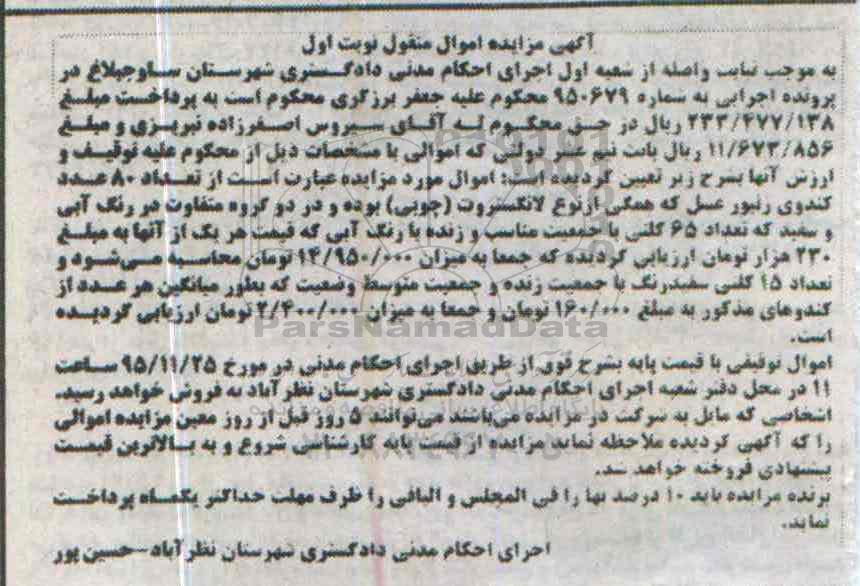 آگهی مزایده اموال منقول نوبت اول
به موجب نیابت واصله از شعبه اول اجرای احکام مدنی دادگستری شهرستان ساوجبلاغ در
پرونده اجرایی به شماره ۹۵۰۶۷۹ محکوم علیه جعفر برزگری محکوم است به پرداخت مبلغ
۲۳۳/۴۷۷/۱۳۸ ریال در حق محکوم له آقای سیروس اصغرزاده تبریزی و مبلغ
۱۱/۶۷۳/۸۵۶ ریال بابت نیم عشر دولتی که اموالی با مشخصات ذیل از محکوم علیه توقیف و
ارزش آنها بشرح زیر تعیین گردیده است: اموال مورد مزایده عبارت است از تعداد ۸۰ عدد
کندوی زنبور عسل که همگی ازنوع لانگستروت (چوبی) بوده و در دو گروه متفاوت در رنگ آبی
و سفید که تعداد ۶۵ کلنی با جمعیت مناسب و زنده با رنگ آبی که قیمت هر یک از آنها به مبلغ
۲۳۰ هزار تومان ارزیابی گردیده که جمعا به میزان ۱۴/۹۵۰/۰۰۰ تومان محاسبه می‌شود و
تعداد ۱۵ کلنی سفیدرنگ با جمعیت زنده و جمعیت متوسط وضعیت که بطور میانگین هر عدد از
کندوهای مذکور به مبلغ ۱۶۰/۰۰۰ تومان و جمعا به میزان ۲/۴۰۰/۰۰۰ تومان ارزیابی گردیده
است.
ParsNamadData
اموال توقیفی با قیمت پایه بشرح فوق از طریق اجرای احکام مدنی در مورخ ۹۵/۱۱/۲۵ ساعت
۱۱ در محل دفتر شعبه اجرای احکام مدنی دادگستری شهرستان نظرآباد به فروش خواهد رسید.
اشخاصی که مایل به شرکت در مزایده می‌باشند می‌توانند ۵ روز قبل از روز معین مزایده اموالی
را که آگهی گردیده ملاحظه نماید مزایده از قیمت پایه کارشناسی شروع و به بالاترین قیمت
پیشنهادی فروخته خواهد شد.
برنده مزایده باید ۱۰ درصد بها را فی المجلس و الباقی را ظرف مهلت حداکثر یکماه پرداخت
نماید.
اجرای احکام مدنی دادگستری شهرستان نظرآباد-حسین پور